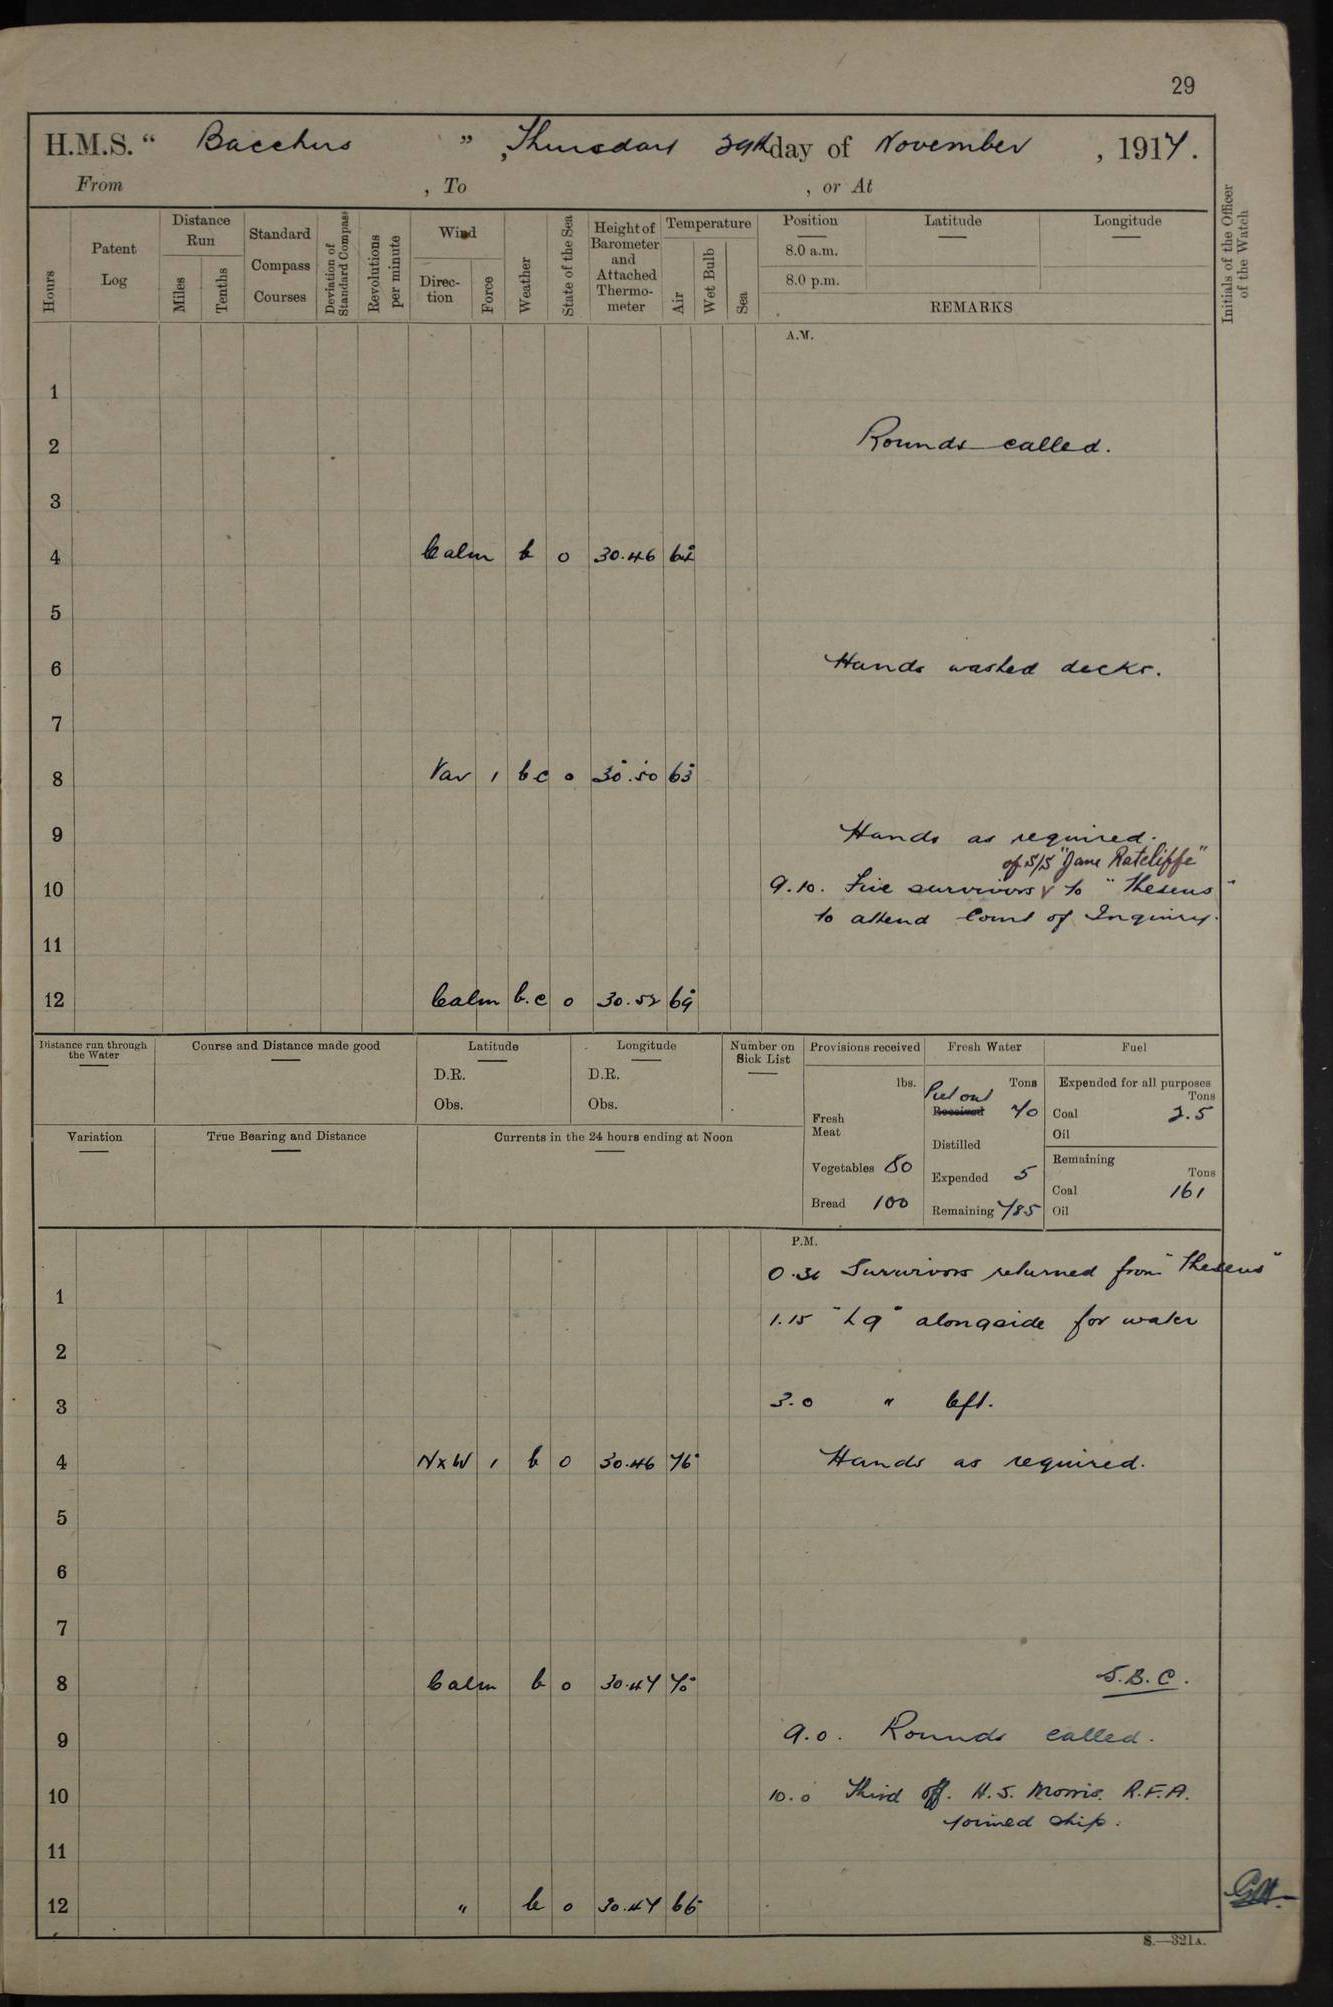 29
H.M.S. " Bacchus ", Thursday 29th day of November, 1917.
From , To , or At
Hours
Patent Log
Distance Run
Miles
Tenths
Standard Compass Courses
Deviation of Standard Compass
Revolutions per minute
Wind
Direction
Force
Weather
State of the Sea
Height of Barometer and Attached Thermometer
Temperature
Air
Wet Bulb
Sea
Position Latitude Longitude
8.0 a.m.
8.0 p.m.
REMARKS
Initials of the Officer of the Watch
A.M.
1
2 Rounds called.
3
4 Calm b 0 30.46
5
6 Hands washed decks.
7
8 Var 1 b c 0 30.50 63°
9 Hands as required.
of S/S "Jane Ratcliffe"
10 9.10. Five survivors v to "Theseus"
to attend Court of Inquiry.
11
12 Calm b.c 0 30.52 69°
Distance run through the Water
Course and Distance made good
Latitude
D.R.
Obs.
Longitude
D.R.
Obs.
Number on Sick List
Provisions received
lbs.
Fresh Meat
Vegetables 80
Bread 100
Fresh Water
Tons
Put out
Received 70
Distilled
Expended 5
Remaining 785
Fuel
Expended for all purposes
Tons
Coal 2.5
Oil
Remaining
Tons
Coal 161
Oil
Variation
True Bearing and Distance
Currents in the 24 hours ending at Noon
P.M.
0.30 Survivors returned from "Theseus"
1
1.15 "L9" alongside for water
2
3 3.0 " left.
4 N x W 1 b 0 30.46 76° Hands as required.
5
6
7
8 Calm b 0 30.47 70° S.B.C.
9 9.0. Rounds called.
10 10.0 Third off. H.S. Morris. R.F.A.
joined ship.
11
12 " b 0 30.47 66
S.—321A.